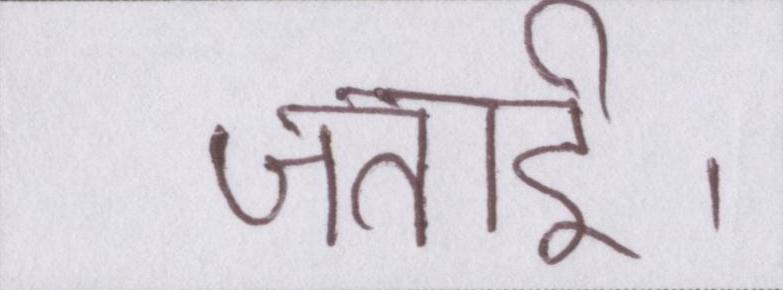 जताई।